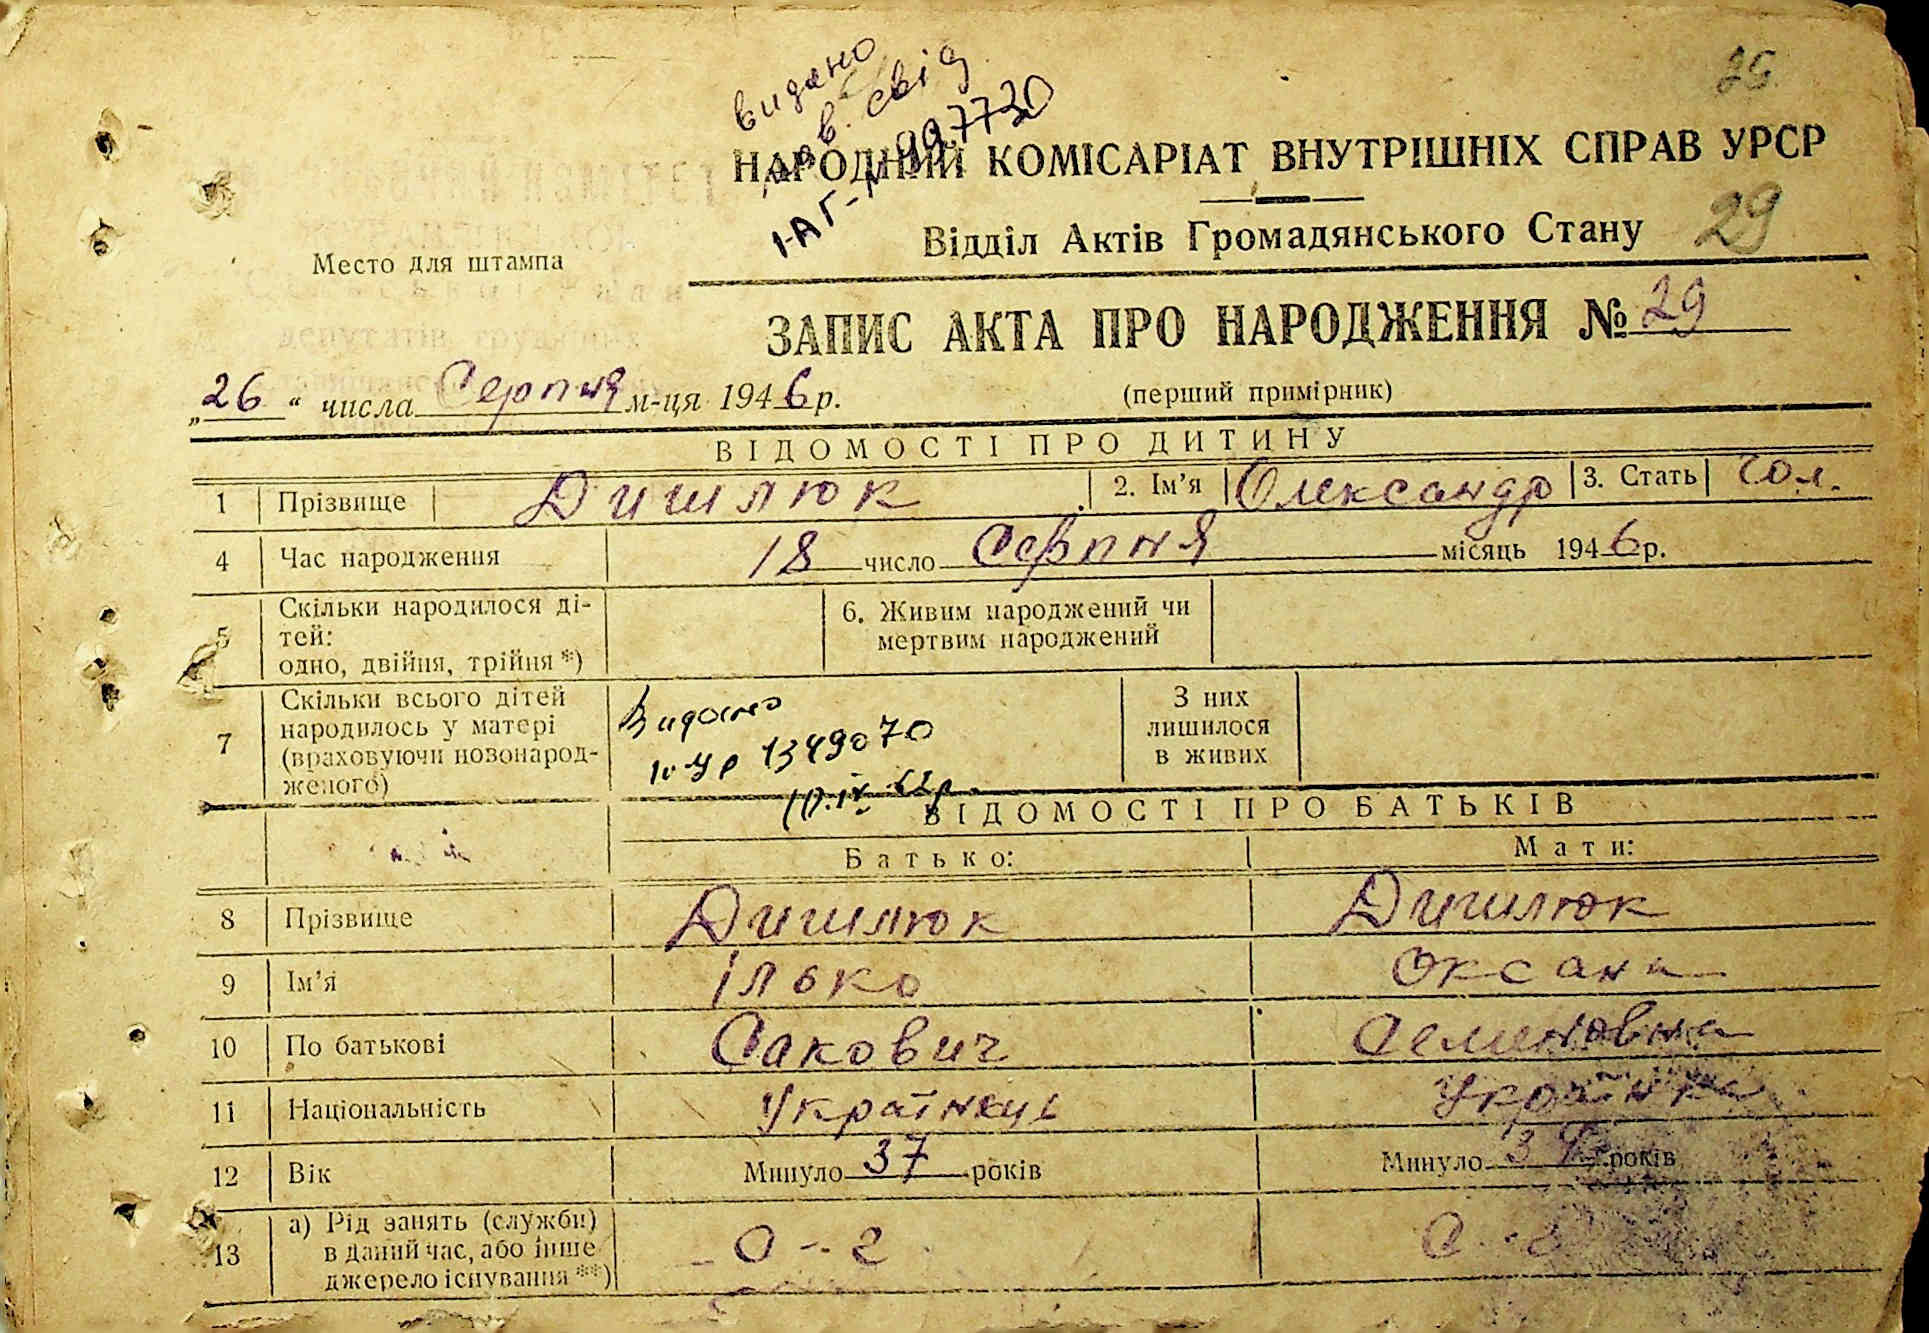 видано
пов. свід
1-АГ-№997730
26
НАРОДНИЙ КОМІСАРІАТ ВНУТРІШНІХ СПРАВ УРСР
Відділ Актів Громадянського Стану
29
Место для штампа
депутатів трудящих
ЗАПИС АКТА ПРО НАРОДЖЕННЯ № 29
„26“ числа Серпня м-ця 1946 р.
(перший примірник)
ВІДОМОСТІ ПРО ДИТИНУ
1 Прізвище Дишлюк 2. Ім'я Олександр 3. Стать чол.
4 Час народження 18 число Серпня місяць 1946 р.
5 Скільки народилося ді-
тей:
одно, двійня, трійня *)
6. Живим народжений чи
мертвим народжений
7 Скільки всього дітей
народилось у матері
(враховуючи новонарод-
женого)
Видано
ІУ-УР 1349070
З них
лишилося
в живих
ВІДОМОСТІ ПРО БАТЬКІВ
Батько: Мати:
8 Прізвище Дишлюк Дишлюк
9 Ім'я Ілько Оксана
10 По батькові Сакович Семеновна
11 Національність Українець Українка
12 Вік Минуло 37 років Минуло років
13 а) Рід занять (служби)
в даний час, або інше
джерело існування **)
О-г О-г